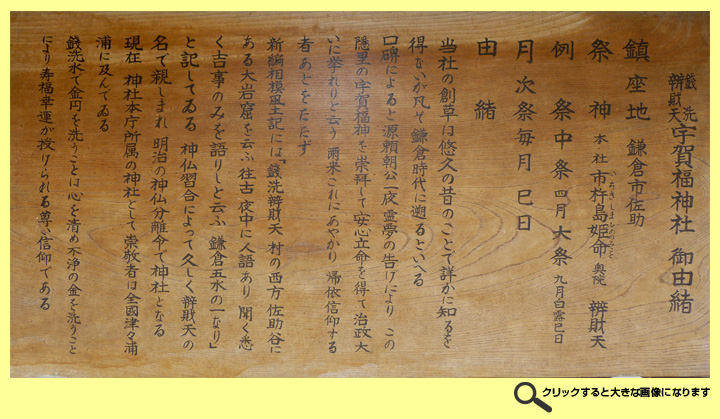 銭洗
辨財天 宇賀福神社 御由緒
鎮座地 鎌倉市佐助
祭神 本社 市杵島姫命 奥院 辨財天
いちきしまひめのみこと
例祭 中祭 四月 大祭 九月白露巳日
月次祭 毎月 巳日
由緒
当社の創草は悠久の昔のことで詳かに知るを
得ないが凡そ鎌倉時代に遡るといへる
口碑によると源頼朝公一夜霊夢の告げにより この
隠里の宇賀福神を崇拝して安心立命を得て治政大
いに挙れりと云う 爾来これにあやかり 帰依信仰する
者あとをたたず
新編相模風土記には「銭洗辨財天 村の西方佐助谷に
ある大岩窟を云ふ 往古 夜中に人語あり 聞く悉
く吉事のみを語りしと云ふ 鎌倉五水の一なり」
と記してゐる 神仏習合によって久しく辨財天の
名で親しまれ 明治の神仏分離令で神社となる
現在 神社本庁所属の神社として崇敬者は全國津々浦
浦に及んでゐる
銭洗水で金円を洗うことは心を清め不浄の金を洗うこと
により寿福幸運が授けられる尊い信仰である
クリックすると大きな画像になります